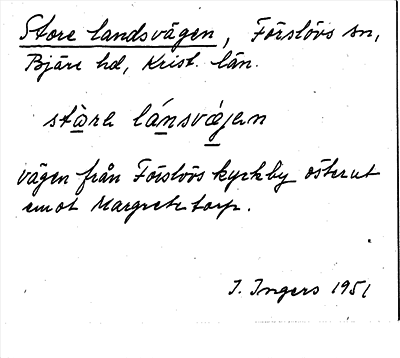 Store landsvägen, Förslövs sn,
Bjäre hd, Krist. län.
stàrə lánsvǽjən
vägen från Förslövs kyrkby österut
emot Margretetorp.
I. Ingers 1951